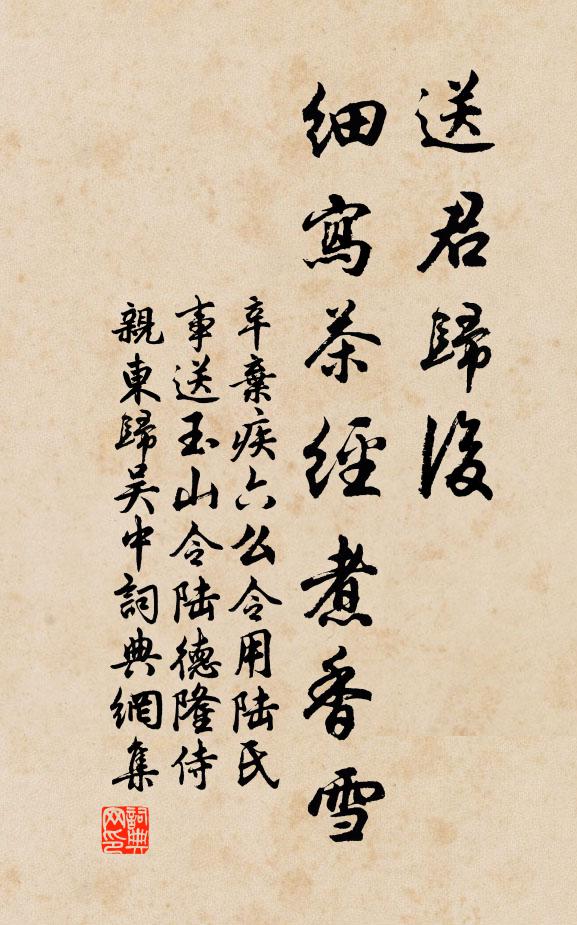 送君歸後
細寫茶經煮香雪
辛棄疾六么令用陸氏
事送玉山令陸德隆侍
親東歸吴中詞典網集
詞典网印